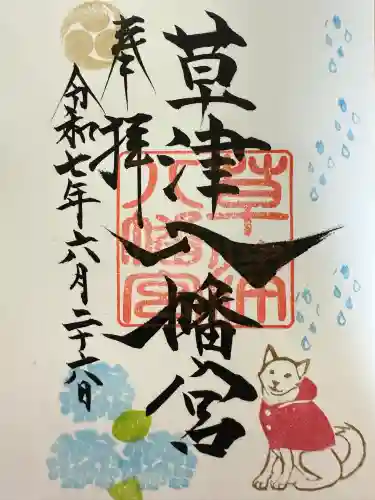 奉拝
草津八幡宮
令和七年六月二十六日
草津八幡宮